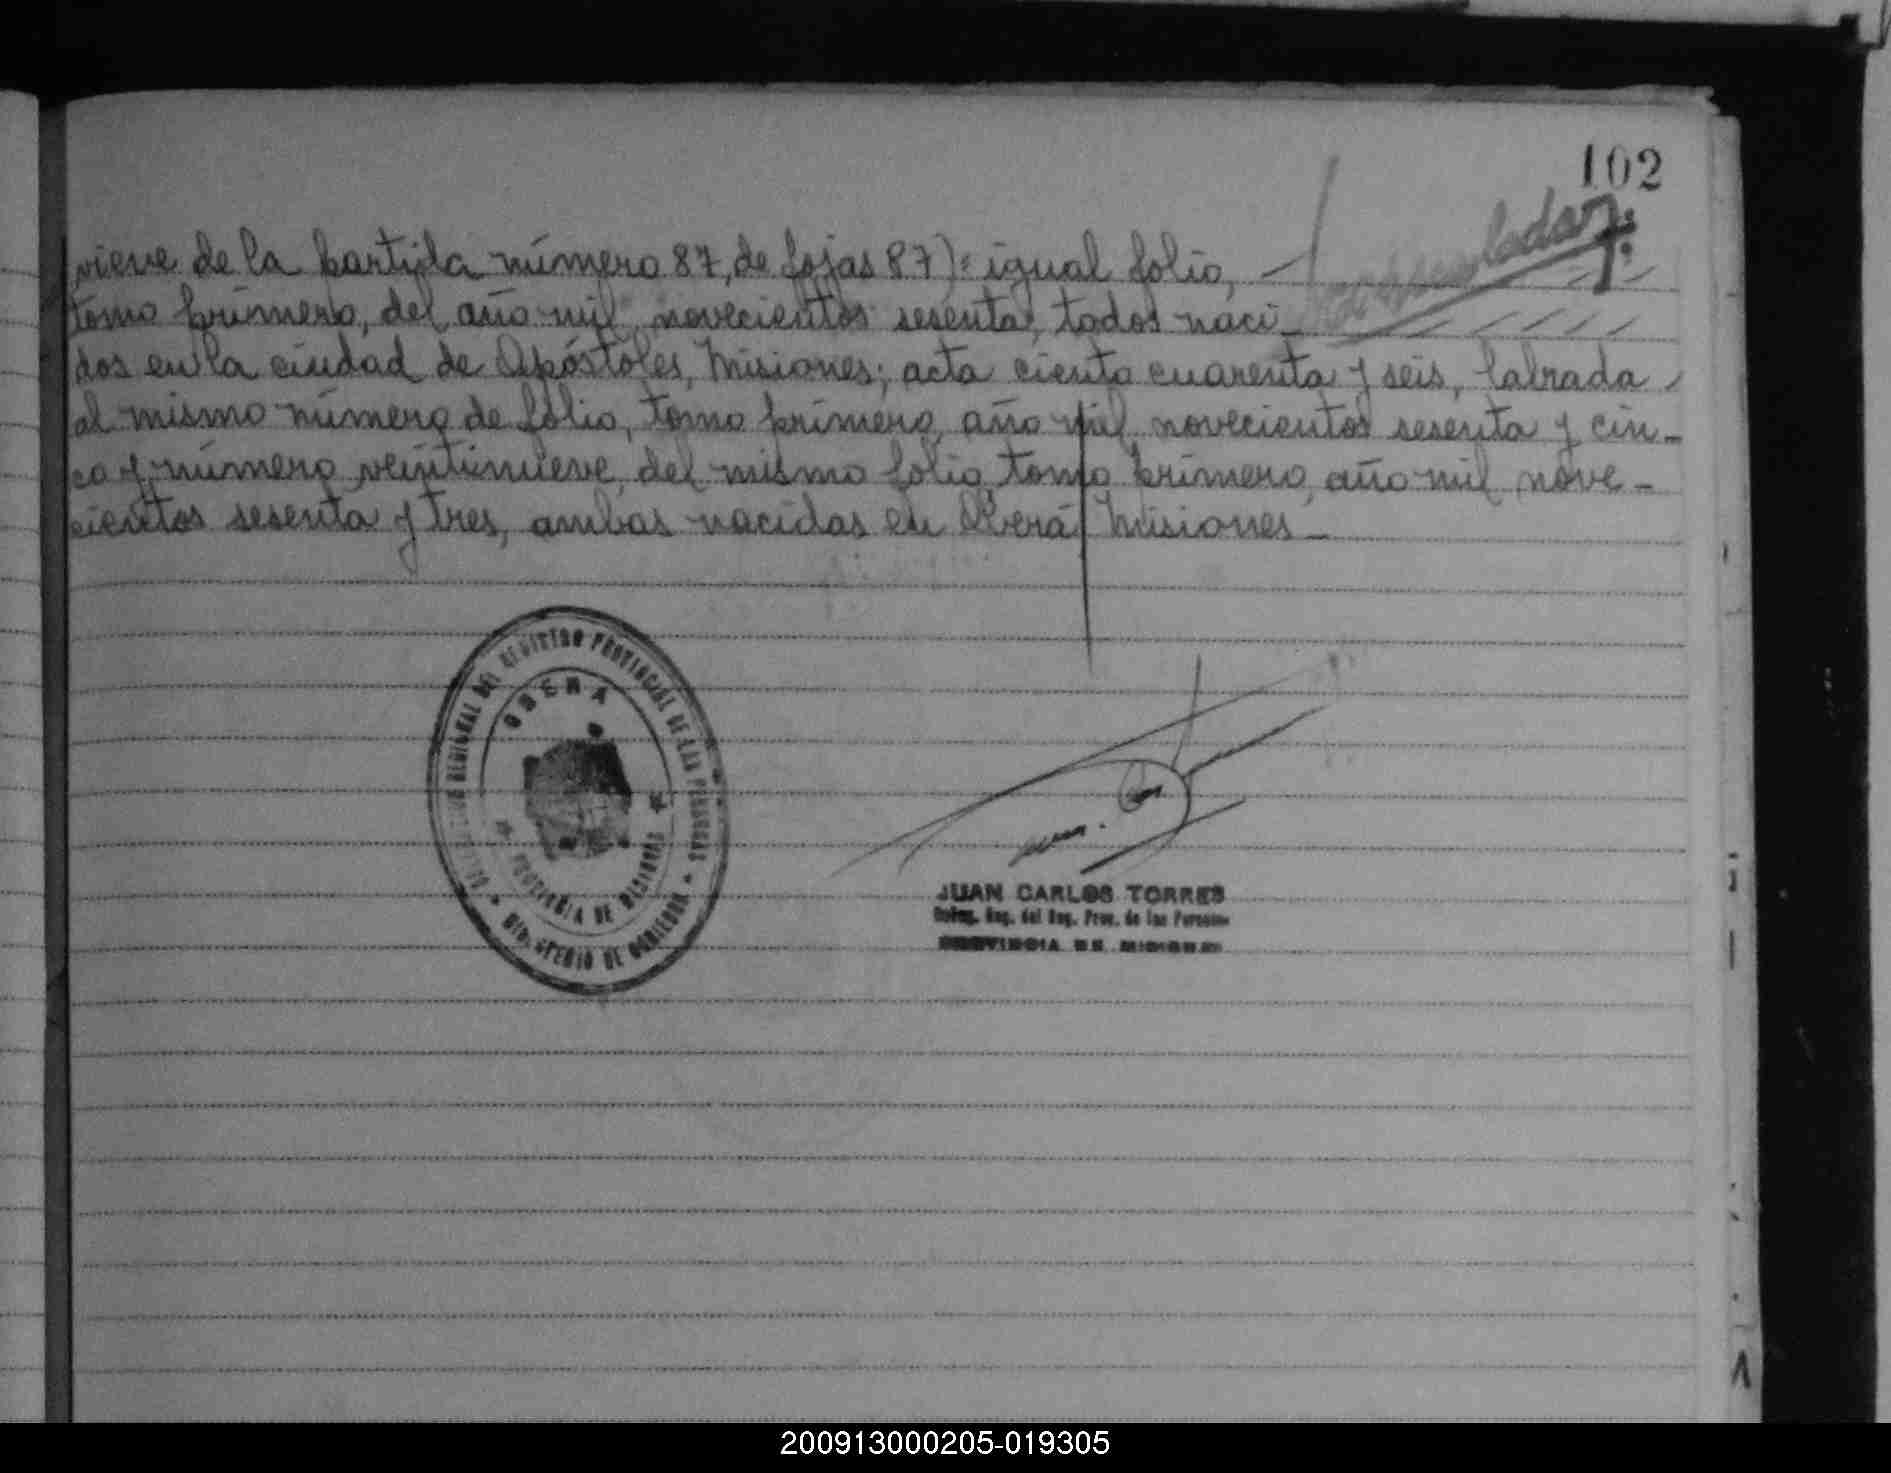 102
viene de la partida número 87, de fojas 87): igual folio,
tomo primero, del año mil novecientos sesenta, todos naci-
dos en la ciudad de Apóstoles, Misiones; acta ciento cuarenta y seis, labrada
al mismo número de folio, tomo primero, año mil novecientos sesenta y cin-
co y número veintinueve, del mismo folio, tomo primero, año mil nove-
cientos sesenta y tres, ambas nacidas en Oberá, Misiones -
REGIONAL DEL REGISTRO PROVINCIAL DE LAS PERSONAS
OBERA
PROVINCIA DE MISIONES
MINISTERIO DE GOBIERNO
JUAN CARLOS TORRES
Reg. del Reg. Prov. de las Personas
PROVINCIA DE MISIONES
200913000205-019305